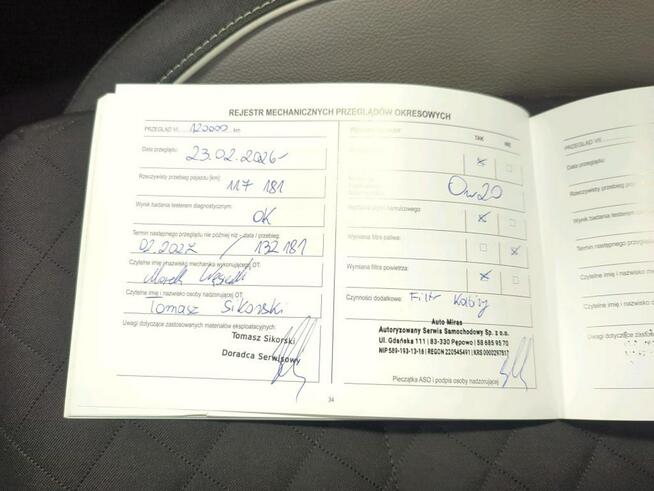 REJESTR MECHANICZNYCH PRZEGLĄDÓW OKRESOWYCH
PRZEGLĄD VI 120000 km
Data przeglądu:
23.02.2026
Rzeczywisty przebieg pojazdu [km]:
117 181
Wynik badania testerem diagnostycznym:
OK
Termin następnego przeglądu nie później niż - data / przebieg:
02.2027 / 132 181
Czytelne imię i nazwisko mechanika wykonującego OT:
Marek
Czytelne imię i nazwisko osoby nadzorującej OT:
Tomasz Sikorski
Uwagi dotyczące zastosowanych materiałów eksploatacyjnych:
Tomasz Sikorski
Doradca Serwisowy
34
TAK NIE
0w20
hamulcowego
Wymiana filtra paliwa:
Wymiana filtra powietrza:
Czynności dodatkowe: Filtr Kabiny
Auto Miras
Autoryzowany Serwis Samochodowy Sp. z o.o.
Ul. Gdańska 111 | 83-330 Pępowo | 58 685 95 70
NIP 589-193-13-18 | REGON 220545491 | KRS 0000297817
Pieczątka ASO i podpis osoby nadzorującej
PRZEGLĄD VII
Data przeglądu:
Rzeczywisty przebieg pojazdu [km]:
Wynik badania testerem
Termin następnego przeglądu nie
Czytelne imię i nazwisko mechanika
Czytelne imię i nazwisko osoby
Uwagi dotyczące zastosowanych